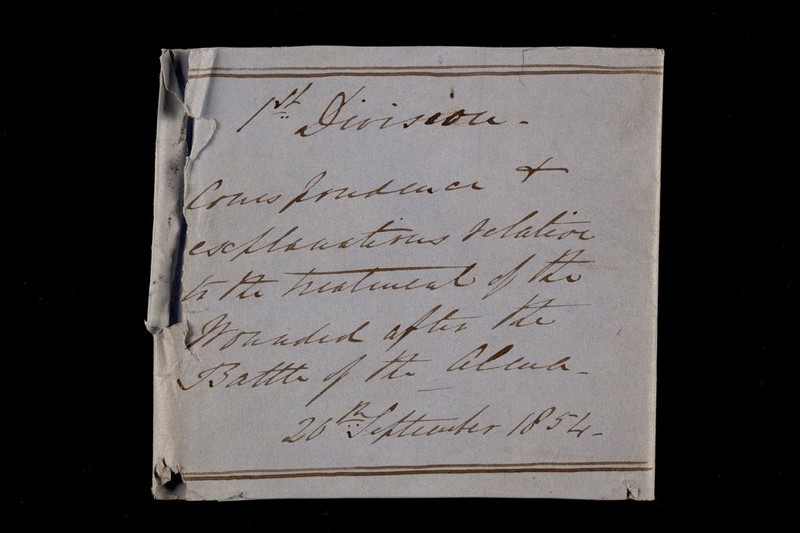 1st Division -
Correspondence &
explanations relative
to the treatment of the
Wounded after the
Battle of the Alma -
20th September 1854 -